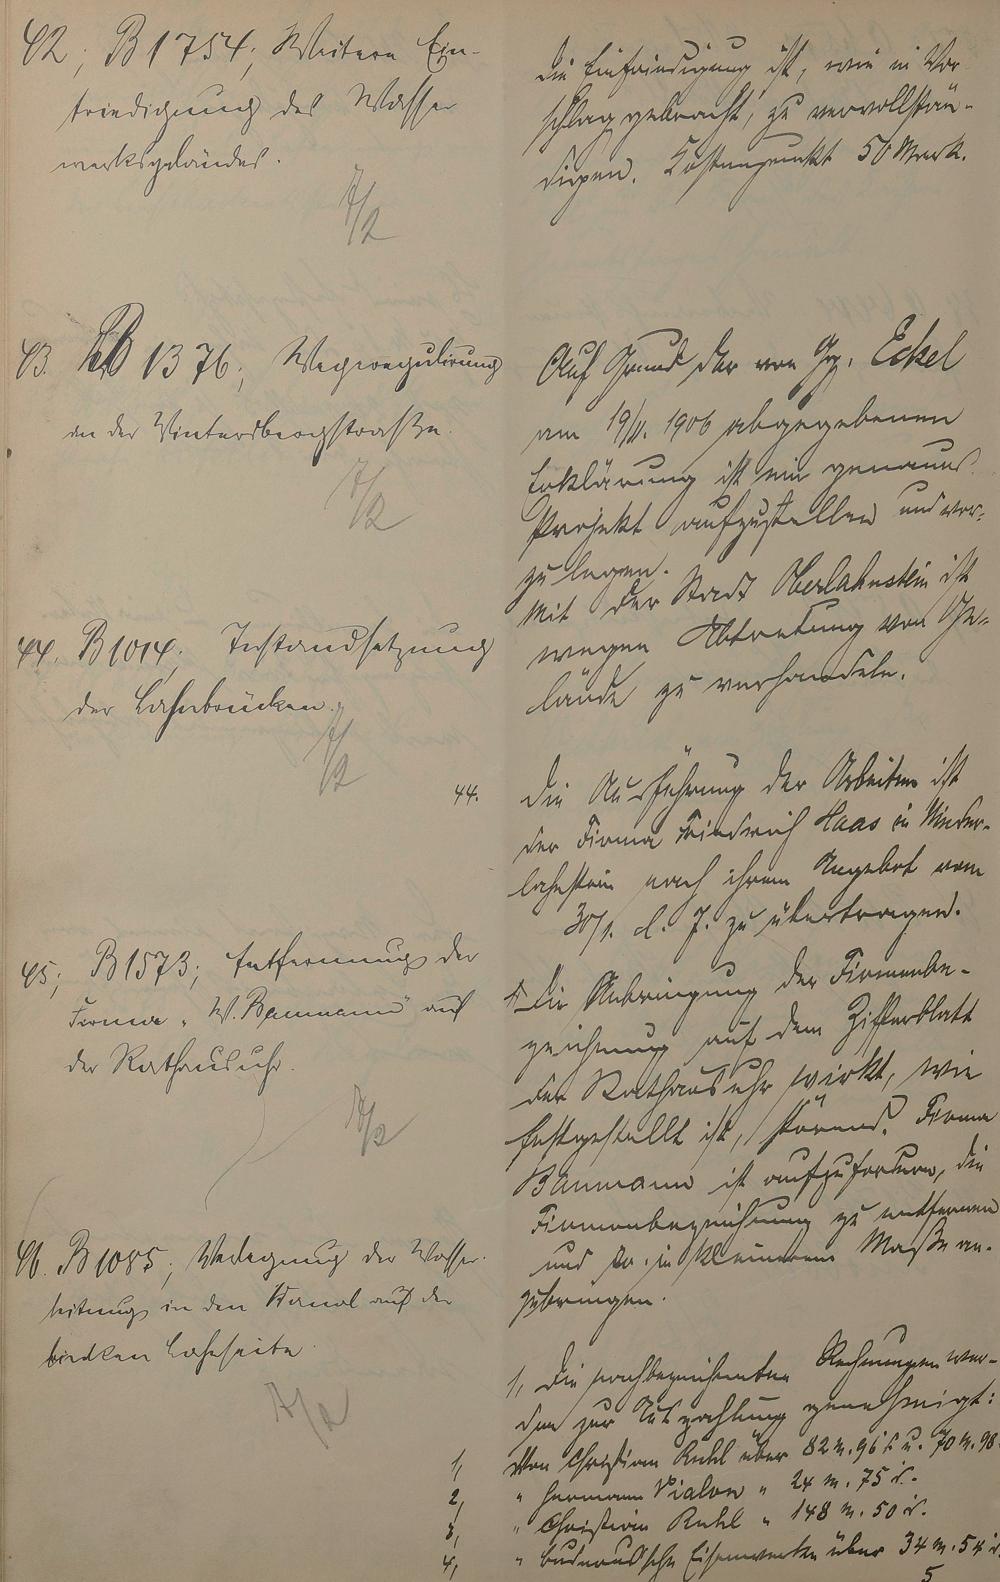 42, B 1754, Weitere Ein-
friedigung des Wasser
werksgeländes.
7/2
Die Einfriedigung ist, wie in Vor
schlag gebracht, zu vervollstän-
digen. Kostenpunkt 50 Mark.
43. B 1376, Wegeregulirung
an der Wintersbergstraße.
7/2
Auf Grund der von Hg. Eckel
am 19/11. 1906 abgegebenen
Erklärung ist ein genaues
Projekt aufzustellen und vor-
zulegen.
Mit der Stadt Oberlahnstein ist
wegen Abtretung von Ge-
lände zu verhandeln.
44. B 1014, Instandsetzung
der Lahnbrücken.
7/2
44.
Die Ausführung der Arbeiten ist
der Firma Friedrich Haas in Nieder-
lahnstein nach ihrem Angebot vom
30/1. d. J. zu übertragen.
45; B 1573; Entfernung der
Firma „W. Baumann" auf
der Rathausuhr.
7/2
Die Anbringung der Firmenbe-
zeichnung auf dem Zifferblatt
der Rathausuhr wirkt, wie
festgestellt ist, störend. Firma
Baumann ist aufzufordern, die
Firmenbezeichnung zu entfernen
und in kleinerem Maße an-
zubringen.
46. B 1085, Verlegung der Wasser-
leitung in den Kanal auf der
linken Lahnseite.
7/2
1, Die nachbezeichneten Rechnungen wer-
den zur Auszahlung genehmigt:
1, Von Christian Ruhl über 82 M. 96 u. 70 M. 98
2, " Hermann Vialon " 24 M. 75 d.
3, " Christian Ruhl " 148 M. 50 d.
4, " Buderus'sche Eisenwerke über 34 M. 54 d.
5